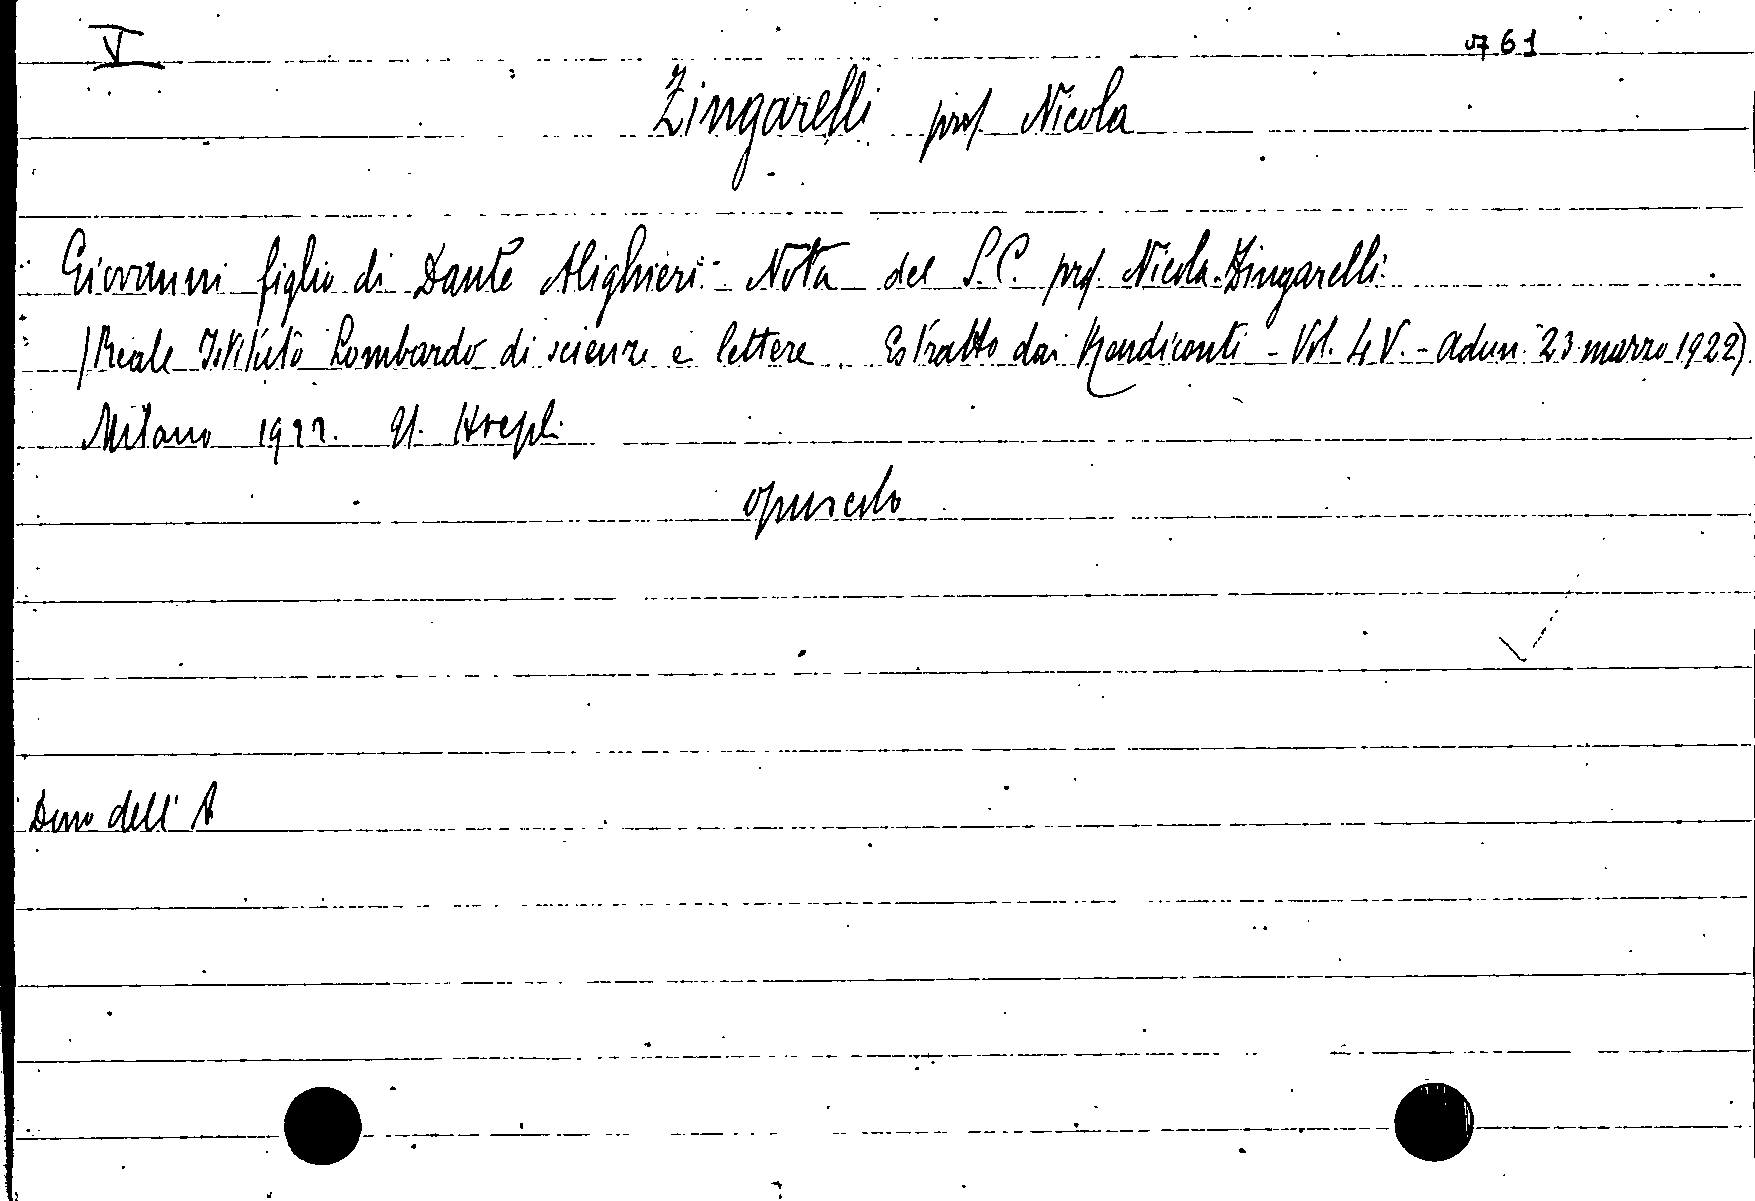 V
761
Zingarelli prof Nicola
Giovanni figlio di Dante Alighieri - Nota del S.C. prof. Nicola Zingarelli
(Reale Istituto Lombardo di scienze e lettere. Estratto dai Rendiconti - Vol. LV. - Adun. 23 marzo 1922)
Milano 1922. U. Hoepli
opuscolo
Dono dell' A